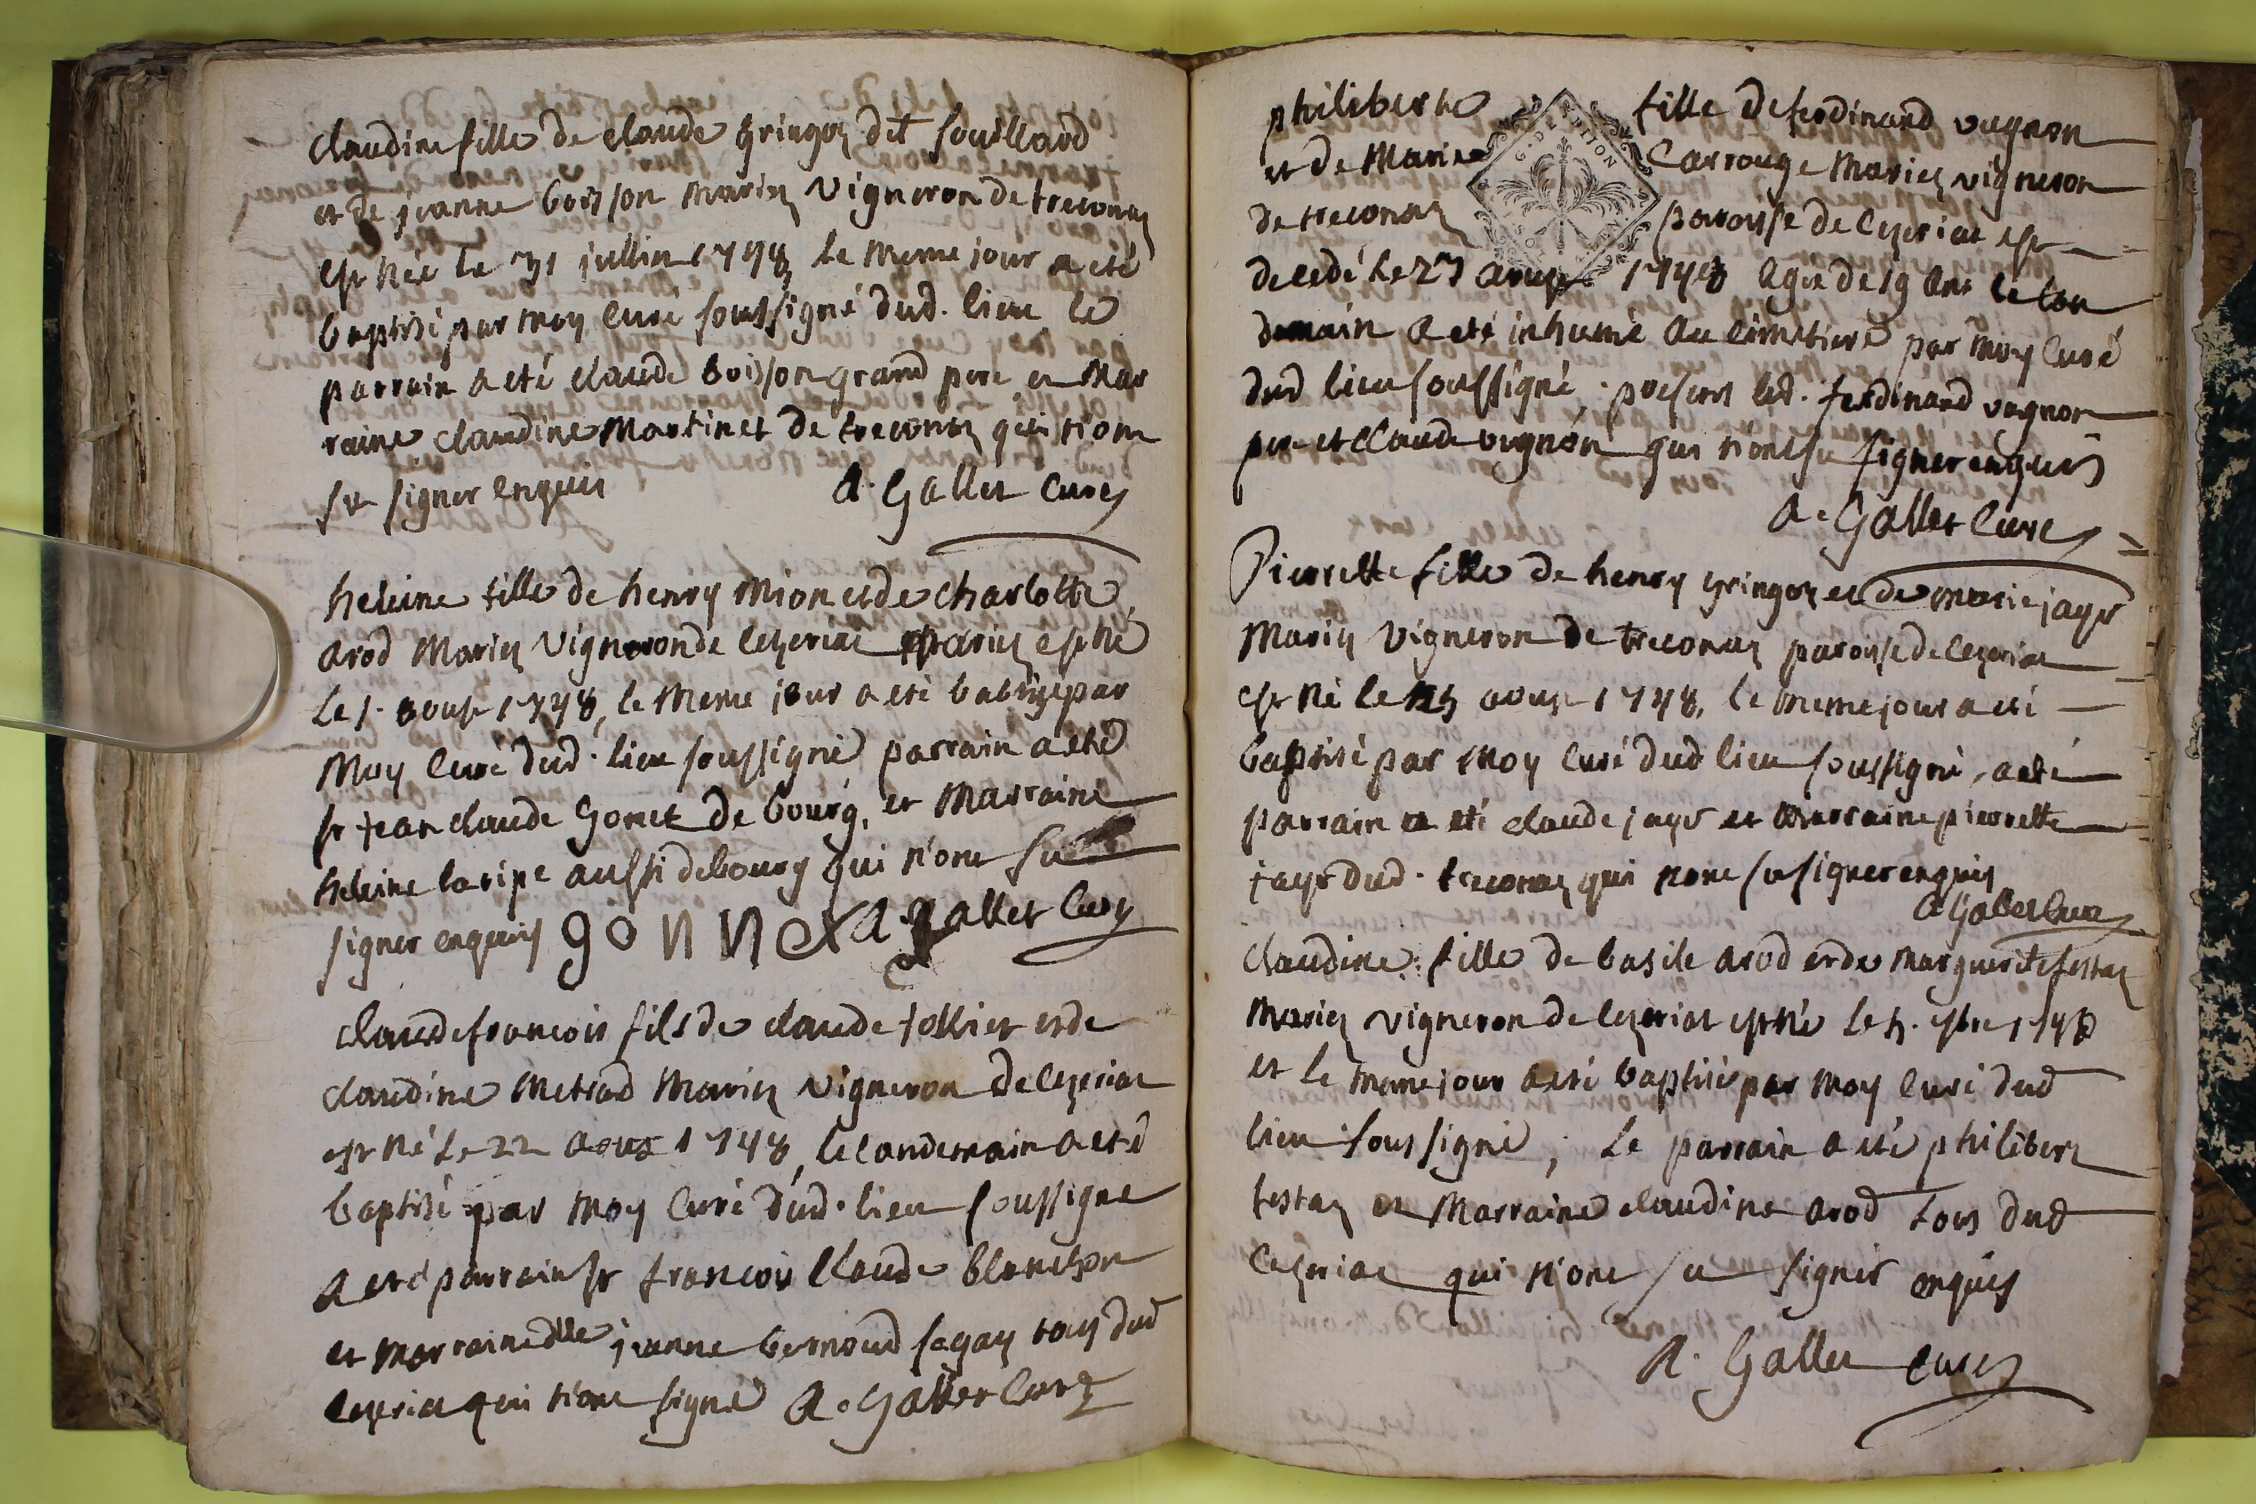 claudine fille de claude gringoz dit souillard
et de jeanne boisson mariez vigneron de treconaz
est née le 31 jullin 1748, le meme jour a eté
baptisé par moy curé soussigné dud. lieu le
parrain a eté claude boisson grand pere et mar
raine claudine martinet de treconaz qui n'ont
su signer enquis A. Gallet curez
heleine fille de henry mion et de charlotte
arod mariez vigneron de cezeriat est né
le 1. aoust 1748, le meme jour a eté batizé par
moy curé dud. lieu soussigné parrain a eté
sr jean claude gonet de bourg, et marraine
heleine laripe aussi de bourg qui n'ont su
signer enquis gonnex A. gallet curez
claude francois fils de claude follier et de
claudine metrad mariez vigneron de cezeriat
est né le 22 aoust 1748, le landemain a eté
baptisé par moy curé dud. lieu soussigné
a eté parrain sr francois claude blanchon
et marraine dlle jeanne bernoud sagay tous dud
cezeriat qui n'ont signé A. Gallet curez
philiberte fille de ferdinand vugnon
G. D. DITION
et de marie carrouge mariez vigneron
de treconaz paroisse de cezeriat est
decedé le 27 aoust 1748 agée de 19 ans le lan
demain a eté inhumé au cimetiere par moy curé
dud lieu soussigné, presens led. ferdinand vugnon
pere et claude vugnon qui n'ont su signer enquis
A. Gallet curez
Pierrette fille de henry gringoz et de marie jayr
mariez vigneron de treconaz paroisse de cezeriat
est né le aoust 1748, le meme jour a eté
baptisé par moy curé dud lieu soussigné, a eté
parrain a eté claude jayr et marraine pierrette
jayr dud. treconaz qui n'ont su signer enquis
A Gallet curez
claudine fille de basile arod et de marguerite festaz
mariez vigneron de cezeriat est né le 7bre 1748
et le meme jour a eté baptisée par moy curé dud
lieu soussigné, le parrain a eté philibert
festaz et marraine claudine arod tous dud
cezeriat qui n'ont su signer enquis
A. Gallet curez